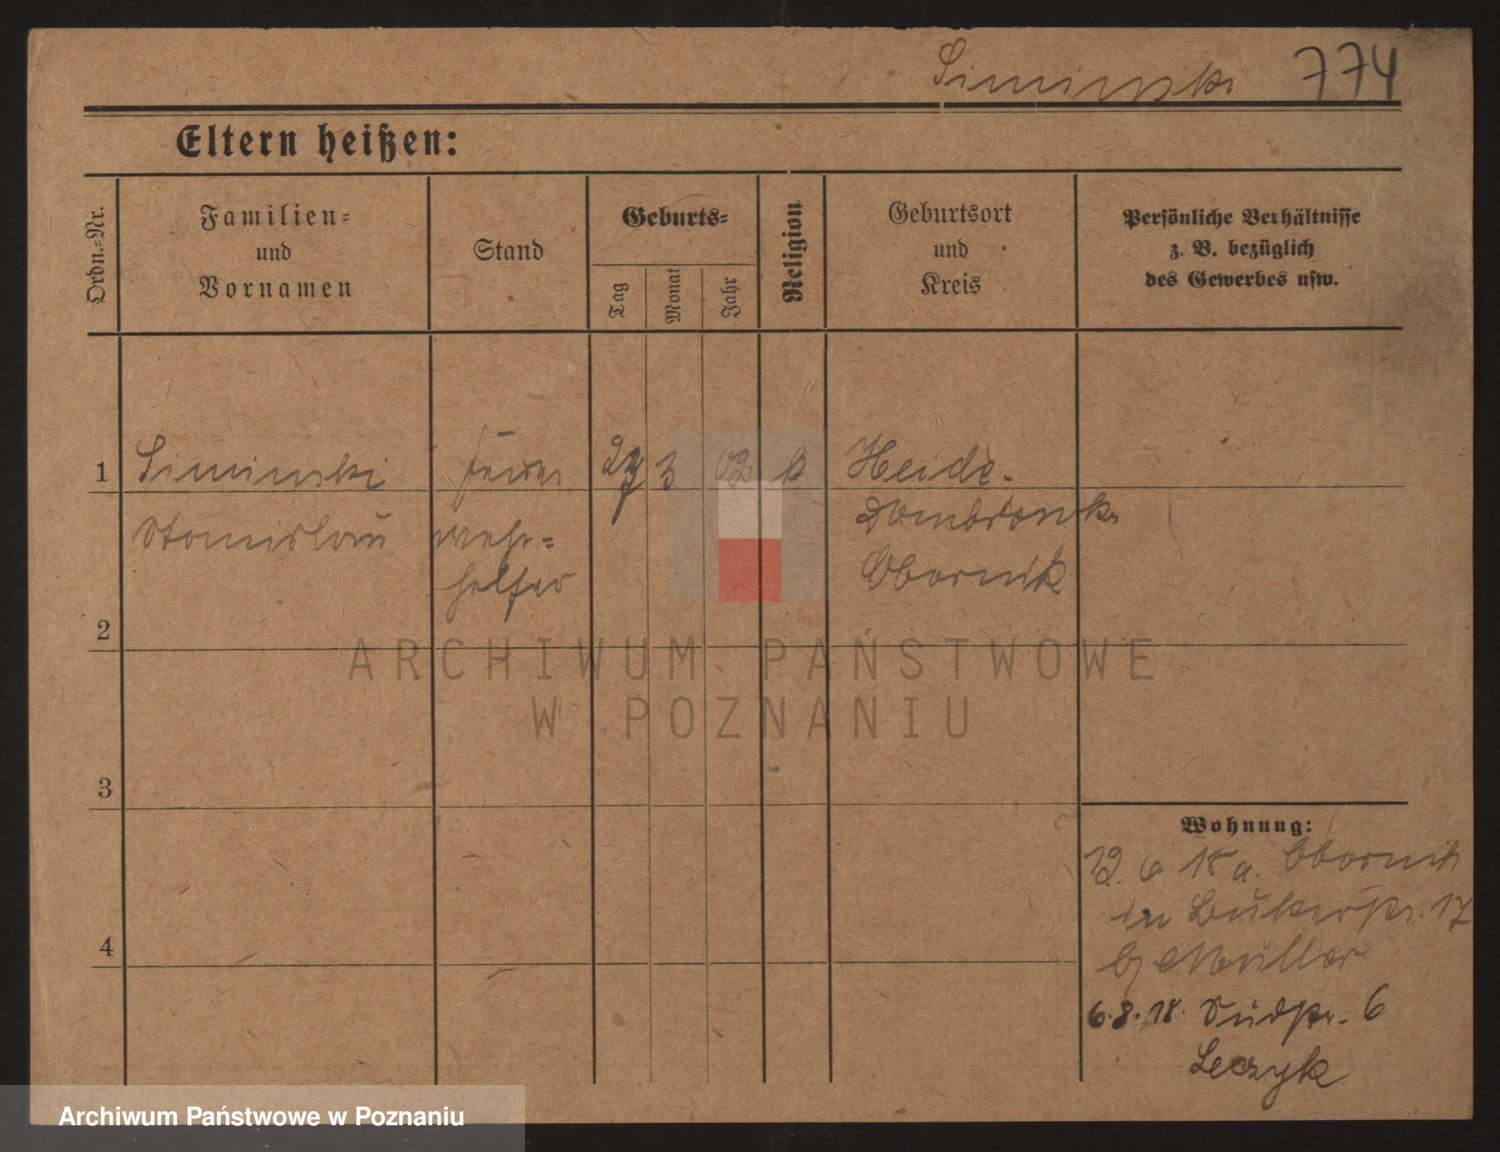 Siminski 774
Eltern heißen:
Ordn.=Nr.
Familien=
und
Vornamen
Stand
Geburts=
Tag
Monat
Jahr
Religion
Geburtsort
und
Kreis
Persönliche Verhältnisse
z. B. bezüglich
des Gewerbes usw.
1 Siminski 27 3 02 k Heide-
Stanislaus wehr= Dombrowka
helfer Obornik
2
3
4
ARCHIWUM PAŃSTWOWE
W POZNANIU
Wohnung:
12. 6 18 a. Obornik
in Bukerstr. 17
b/ Müller
6.8.18. Südstr. 6
Leczyk
Archiwum Państwowe w Poznaniu